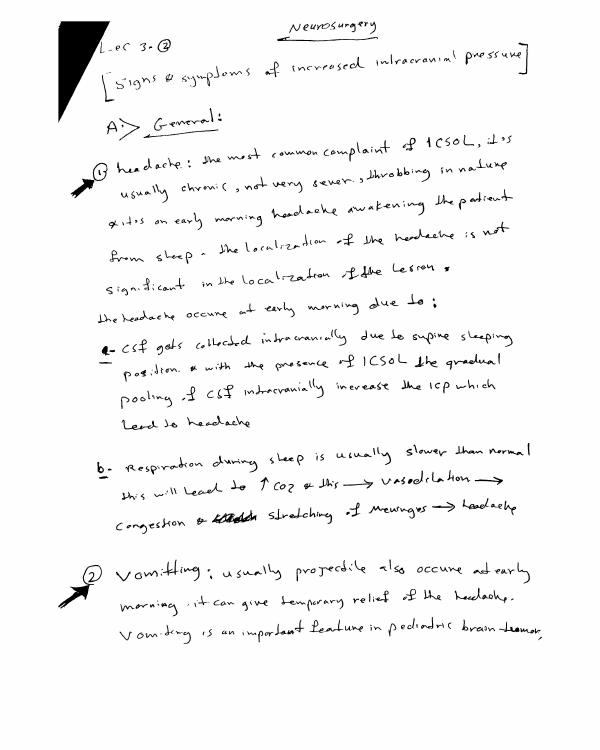 Neurosurgery
Lec 3-②
[Signs & symptoms of increased intracranial pressure]
A:> General:
① headache: the most common complaint of ICSOL, it's
usually chronic, not very sever, throbbing in nature
& it's on early morning headache awakening the patient
from sleep - the localization of the headache is not
significant in the localization of the Lesion.
the headache occure at early morning due to:
a- CSF gets collected intracranially due to supine sleeping
position. & with the presence of ICSOL the gradual
pooling of CSF intracranially increase the ICP which
Lead to headache
b- Respiration during sleep is usually slower than normal
this will Lead to ↑ CO2 & this → vasodilation →
Congestion & stretching of Meninges → headache
② Vomitting: usually projectile also occure at early
morning. it can give temporary relief of the headache.
Vomiting is an important feature in pediatric brain